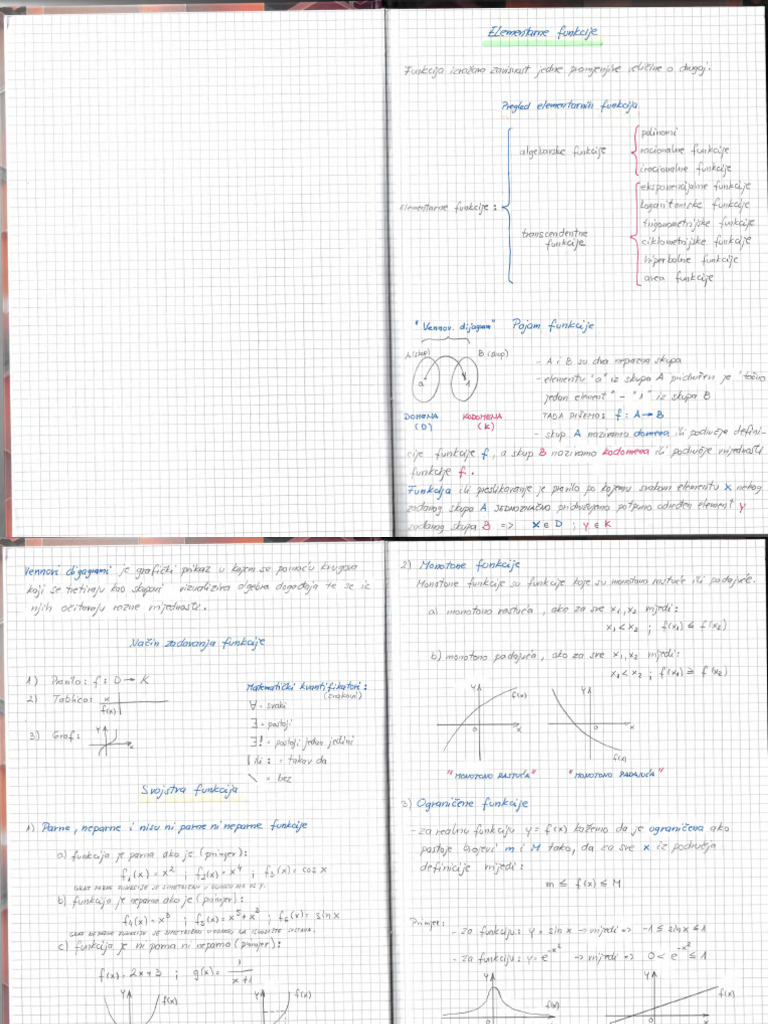 Elementarne funkcije
Funkcija izražava zavisnost jedne promjenjive veličine o drugoj.
Pregled elementarnih funkcija
elementarne funkcije:
algebarske funkcije
polinomi
racionalne funkcije
iracionalne funkcije
transcendentne
funkcije
eksponencijalne funkcije
logaritamske funkcije
trigonometrijske funkcije
ciklometrijske funkcije
hiperbolne funkcije
area funkcije
"Vennov. dijagram" Pojam funkcije
A(skup) B(skup)
a 1
DOMENA KODOMENA
(D) (K)
- A i B su dva neprazna skupa
- elementu "a" iz skupa A pridružen je "točno
jedan element" - "1" iz skupa B
TADA PIŠEMO: f: A → B
- skup A nazivamo domena ili područje defini-
cije funkcije f, a skup B nazivamo kodomena ili područje vrijednosti
funkcije f.
Funkcija ili preslikavanje je pravilo po kojemu svakom elementu x nekog
zadanog skupa A JEDNOZNAČNO pridružujemo potpuno određen element y
zadanog skupa B => x ∈ D ; y ∈ K
Vennovi digagrami je grafički prikaz u kojem se pomoću krugova
koji se tretiraju kao skupovi vizualizira algebra događaja te se iz
njih očitavaju razne vrijednosti.
Način zadavanja funkcije
1) Pravilo: f: D → K
2) Tablica: x
f(x)
3) Graf: y x
Matematički kvantifikatori:
(znakovi)
∀ = svaki
∃ = postoji
∃! = postoji jedan jedini
| ili : = takav da
\ = bez
Svojstva funkcija
1) Parne, neparne i nisu ni parne ni neparne funkcije
a) funkcija je parna ako je (primjer):
f₁(x) = x² ; f₂(x) = x⁴ ; f₃(x) = cos x
GRAF PARNE FUNKCIJE JE SIMETRIČAN U ODNOSU NA OS Y.
b) funkcija je neparna ako je (primjer):
f₄(x) = x³ ; f₅(x) = x⁵ + x³ ; f₆(x) = sin x
GRAF NEPARNE FUNKCIJE JE SIMETRIČAN U ODNOSU NA ISHODIŠTE SUSTAVA.
c) funkcija je ni parna ni neparna (primjer):
f(x) = 2x+3 ; g(x) = 1
x+1
y f(x) y f(x)
2) Monotone funkcije
Monotone funkcije su funkcije koje su monotono rastuće ili padajuće.
a) monotono rastuća, ako za sve x₁, x₂ vrijedi:
x₁ < x₂ ; f(x₁) ≤ f(x₂)
b) monotono padajuća, ako za sve x₁, x₂ vrijedi:
x₁ < x₂ ; f(x₁) ≥ f(x₂)
y f(x) y
0 x 0 x
f(x)
"MONOTONO RASTUĆA" "MONOTONO PADAJUĆA"
3) Ograničene funkcije
- za realnu funkciju y = f(x) kažemo da je ograničena ako
postoje brojevi m i M tako, da za sve x iz područja
definicije vrijedi:
m ≤ f(x) ≤ M
Primjer:
- za funkciju: y = sin x → vrijedi => -1 ≤ sin x ≤ 1
- za funkciju: y = e^-x² → vrijedi => 0 < e^-x² ≤ 1
y f(x) y f(x)
0 x 0 x